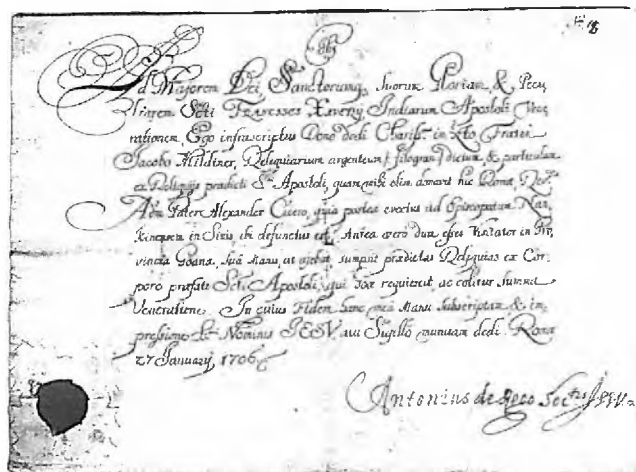 Ad Majorem Dei, Sanctorumq; suorum Gloriam, & Pecu
liarem Scti Francisci Xaverij Indiarum Apostoli Vene
rationem, Ego infrascriptus Dono dedi Chariss. in Xto Fratri
Jacobo Mildiner, Reliquiarium argenteum filogran dictum, & particulam
ex Reliquijs praedicti Sti Apostoli, quam mihi olim donavit hic Romae
Adm Pater Alexander Cicero, quia postea evectus ad Episcopatum Nan
Kinensem in Sinis, ibi defunctus est. Antea vero dum esset Visitator in Pro
vincia Goana, suâ manu, ut ajebat sumpsit praedictas Reliquias ex Cor
pore praefati Scti Apostoli, qui Goae requiescit, ac colitur summa
Veneratione. In cuius Fidem hanc meâ Manu subscriptam, & im
pressione Nominis IESV, sive Sigillo munitam dedi. Roma
27 Januarij 1706
Antonius de Rego Soctis JESV